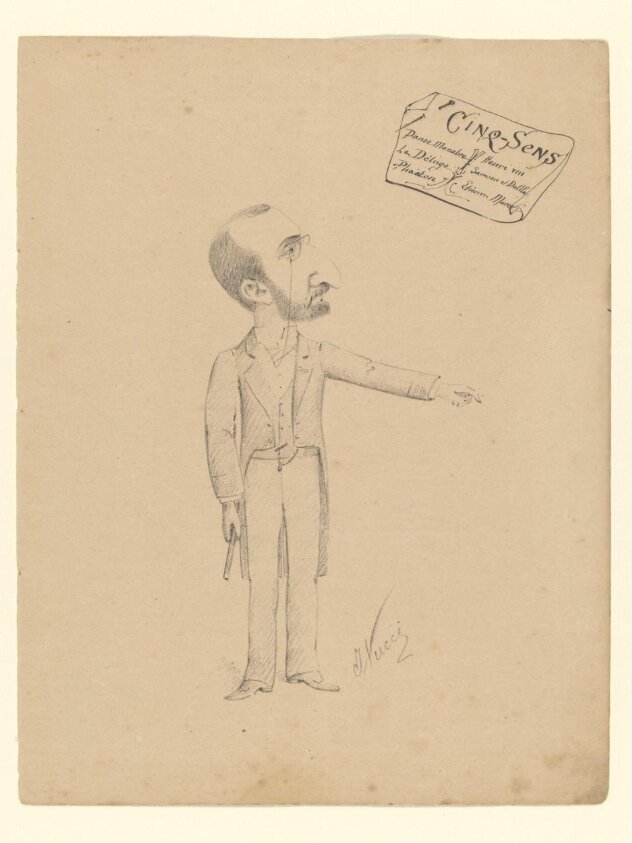 CINQ-SENS
Danse Macabre
Le Déluge
Phaéton
Henry VIII
Samson et Dalila
Etienne Marcel
J Nucci